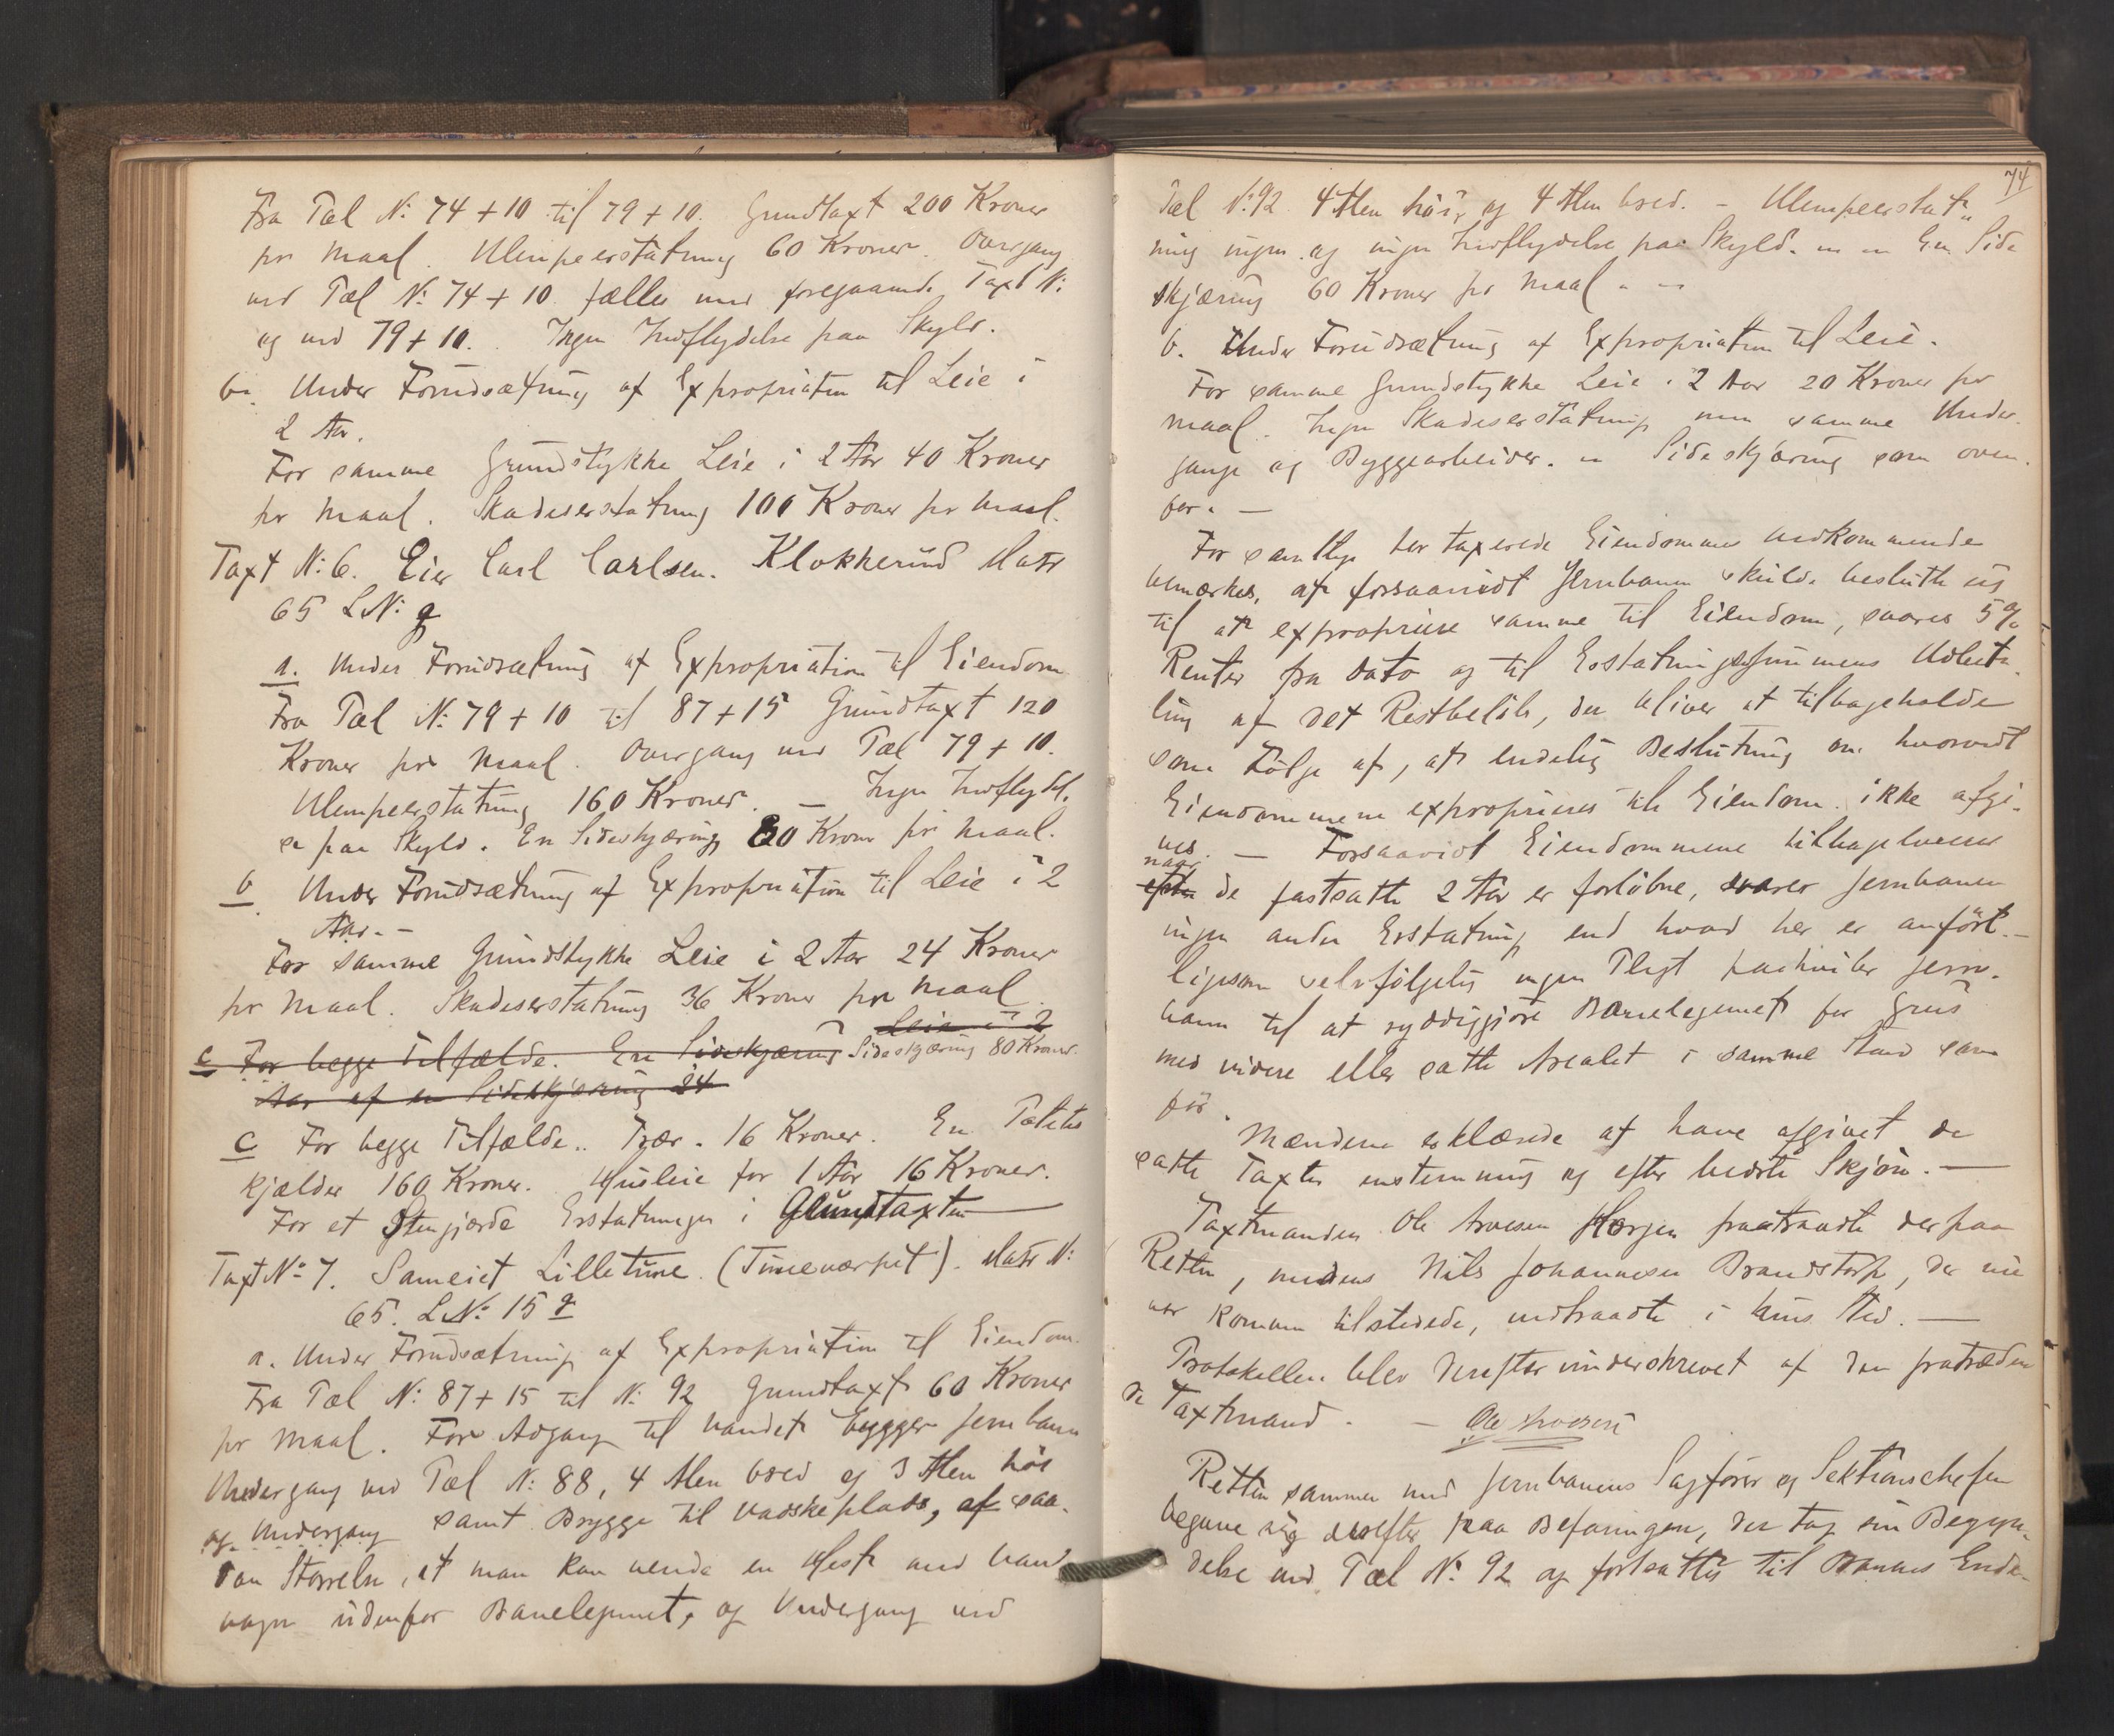 Fra Pæl N: 74 + 10 til 79 + 10. Grundtaxt 200 Kroner
pr Maal. Ulempeerstatning 60 Kroner. Overgang
ved Pæl N: 74 + 10 fælles med foregaaende Taxt N:
og ved 79 + 10. Ingen Indflydelse paa Skyld.
b. Under Forudsætning af Expropriation til Leie i
2 Aar.
For samme Grundstykke Leie i 2 Aar 40 Kroner
pr Maal. Skadeserstatning 100 Kroner pr Maal.
Taxt N: 6. Eier Carl Carlsen. Klokkerud Matr
65 LN: g
a. Under Forudsætning af Expropriation til Eiendom
Fra Pæl N: 79 + 10 til 87 + 15 Grundtaxt 120
Kroner pr Maal. Overgang ved Pæl 79 + 10.
Ulempeerstatning 160 Kroner. — Ingen Indflydel.
se paa Skyld. En Sideskjæring 80 Kroner pr Maal.
b. Under Forudsætning af Expropriation til Leie i 2
Aar. -
For samme Grundstykke Leie i 2 Aar 24 Kroner
pr Maal. Skadeserstatning 36 Kroner pr Maal.
Leie i 2
c For begge Tilfælde. En Sideskjæring Sideskjæring 80 Kroner.
Aar af en Sideskjæring 24
c For begge Tilfælde.. Trær. 16 Kroner. En Potetes
kjælder 160 Kroner. Husleie for 1 Aar 16 Kroner.
For et Stengjærde Erstatningen i Grundtaxten —
Taxt No 7. Sameiet Lilletune. (Tuneværpet). Matr N:
65. LNo 15 g
a. Under Forudsætning af Expropriation til Eiendom.
Fra Pæl N: 87 + 15 til N: 92 Grundtaxt 60 Kroner
pr Maal. For Adgang til Vandet bygger Jernbanen
Undergang ved Pæl N: 88, 4 Alen bred og 3 Alen høi
og Undergang samt Brygge til Vadskeplads, af saa-
dan Størrelse, at man kan vende en Hest med Vand
vogn udenfor Banelegemet, og Undergang ved
74
Pæl N: 92 4 Alen høi, og 4 Alen bred. - Ulempeerstat„
ning ingen og ingen Indflydelse paa Skyld. — En Side
skjæring 60 Kroner pr Maal. —
b. Under Forudsætning af Expropriation til Leie.
For samme Grundstykke Leie i 2 Aar 20 Kroner pr
Maal. Ingen Skadeserstatning men samme Under-
gange og Byggearbeider. — Sideskjæring som oven-
for. —
For samtlige her taxerede Eiendomme vedkommende
bemærkes, at forsaavidt Jernbanen skulde beslutte sig
til at expropriere samme til Eiendom, svares 5 %
Renter fra dato og til Erstatningssummens Udbeta-
ling af det Restbeløb, der bliver at tilbageholde
som Følge af, at endelig Beslutning om hvorvidt
Eiendommene exproprieres til Eiendom ikke afgi-
ves. — Forsaavidt Eiendommene tilbageleveres
naar
efter de fastsatte 2 Aar er forløbne, svarer Jernbanen
ingen anden Erstatning end hvad her er anført. —
ligesom selvfølgelig ingen Pligt paahviler Jern-
banen til at ryddiggjøre Banelegemet for Grus
med videre eller sætte Arealet i samme Stand som
før.
Mændene erklærede at have afgivet de
satte Taxter enstemmig og efter bedste Skjøn. —
Taxtmanden Ole Arvesen Horgen fratraadte derpaa
Retten, medens Nils Johannesen Brandstorp, der nu
var kommen tilstede, indtraadte i hans Sted. —
Protokollen blev derefter underskrevet af den fratræden
de Taxtmand. — Ole Arvesen
Retten sammen med Jernbanens Sagfører og Sektionschefen
begave sig derefter paa Befaringen, der tog sin Begyn-
delse ved Pæl N: 92 og fortsattes til Banens Ende-